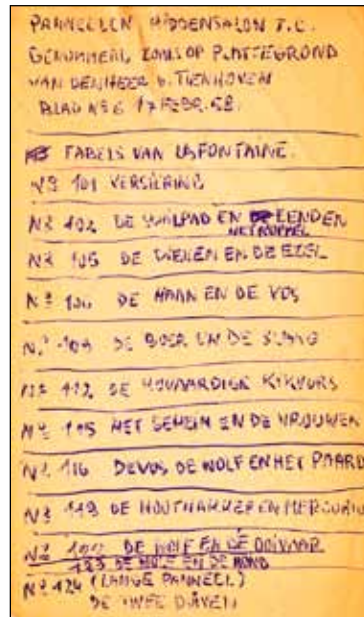 PANNEELEN MIDDENSALON T.C.
GENUMMERD ZOALS OP PLATTEGROND
VAN DEN HEER V. TIENHOVEN
BLAD Nº 6 17 FEBR. 58.
FABELS VAN LAFONTAINE.
Nº 101 VERSIERING
Nº 102 DE SCHILPAD EN EENDEN
Nº 105 DE DIEVEN EN DE EZEL
Nº 106 DE HAAN EN DE VOS
Nº 109 DE BOER EN DE SLANG
Nº 112 DE HOVAARDIGE KIKVORS
Nº 115 HET GEHEIM EN DE VROUWEN
Nº 116 DE VOS DE WOLF EN HET PAARD
Nº 119 DE HOUTHAKKER EN MERCURIUS
Nº DE WOLF EN DE OOIVAAR
123 DE WOLF EN DE HOND
Nº 124 (LANGE PANNEEL)
DE TWEE DUIVEN